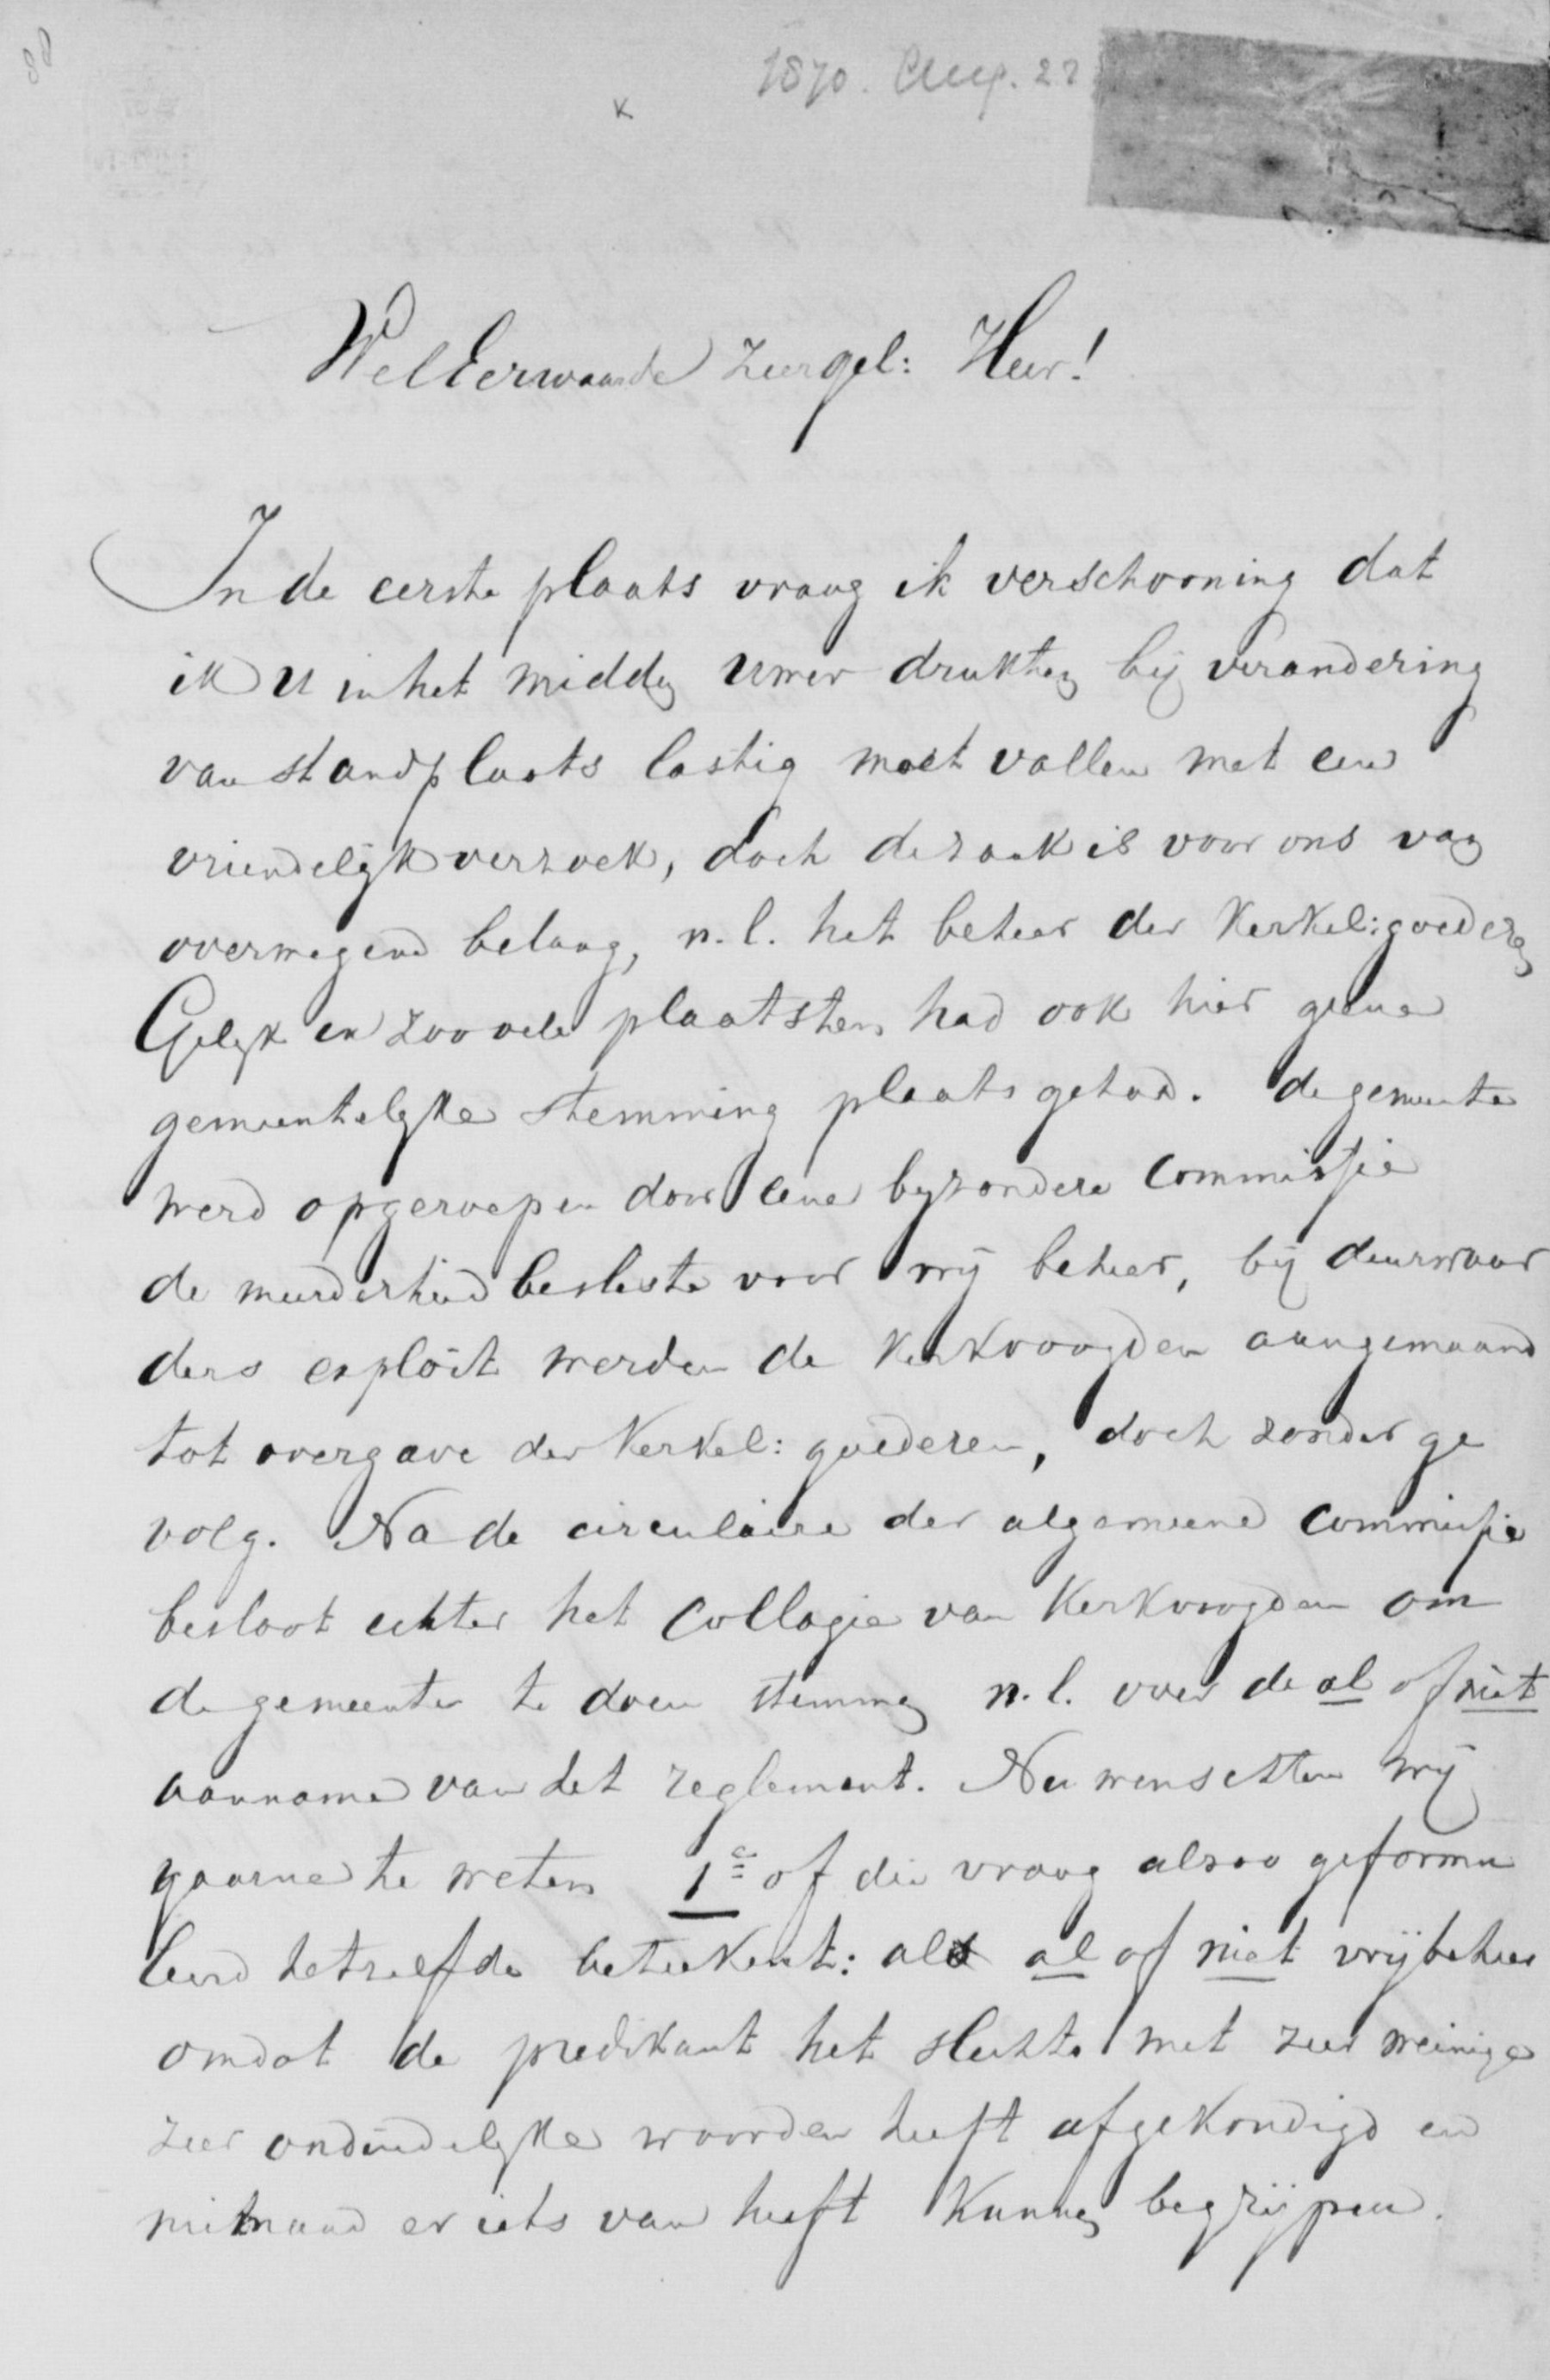 88
1870. Aug. 22
x
WelEerwaarde Zeergel: Heer!
In de eerste plaats vraag ik verschooning dat
ik U in het midden Uwer drukten bij verandering
van standplaats lastig moet vallen met een
vriendelijk verzoek, doch de zaak is voor ons van
overwegend belang, n.l. het beheer der Kerkel: goederen
Gelijk in zoo vele plaatsten had ook hier geene
gemeentelijke stemming plaats gehad. de gemeente
werd opgeroepen door eene byzondere Commissie
de meerderheid besliste voor vrij beheer, bij deurwaar
ders exploit werden de Kerkvoogden aangemaand
tot overgave der Kerkel: goederen, doch zonder ge
volg. Na de circulaire der algemeene Commissie
besloot echter het Collegie van Kerkvoogden om
de gemeente te doen stemmen n.l. over de al of niet
aanname van het reglement. Nu wenschten wij
gaarne te weten 1e of die vraag alzoo geformu
leerd hetzelfde beteekent: als al of niet vrijbeheer
omdat de predikant het slechts met zeer weinige
zeer onduidelijke woorden heeft afgekondigd en
niemand er iets van heeft kunnen begrijpen.